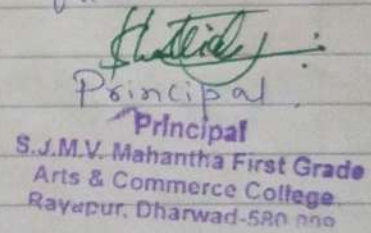 Principal
Principal
S.J.M.V. Mahantha First Grade
Arts & Commerce College
Rayapur, Dharwad-580 009